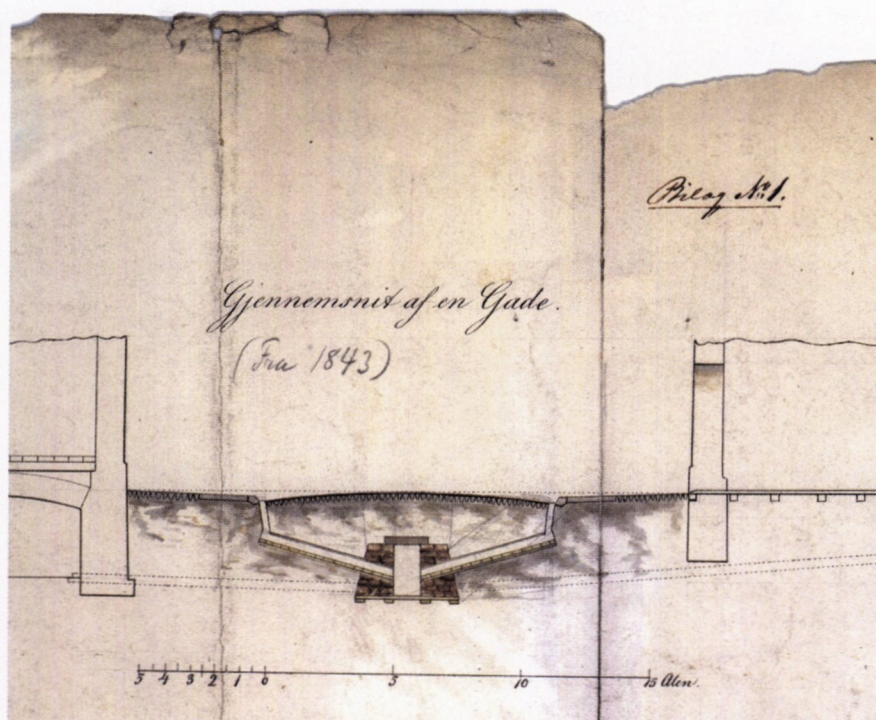 Bilag No 1.
Gjennemsnit af en Gade.
(Fra 1843)
5 4 3 2 1 0 5 10 15 Alen.